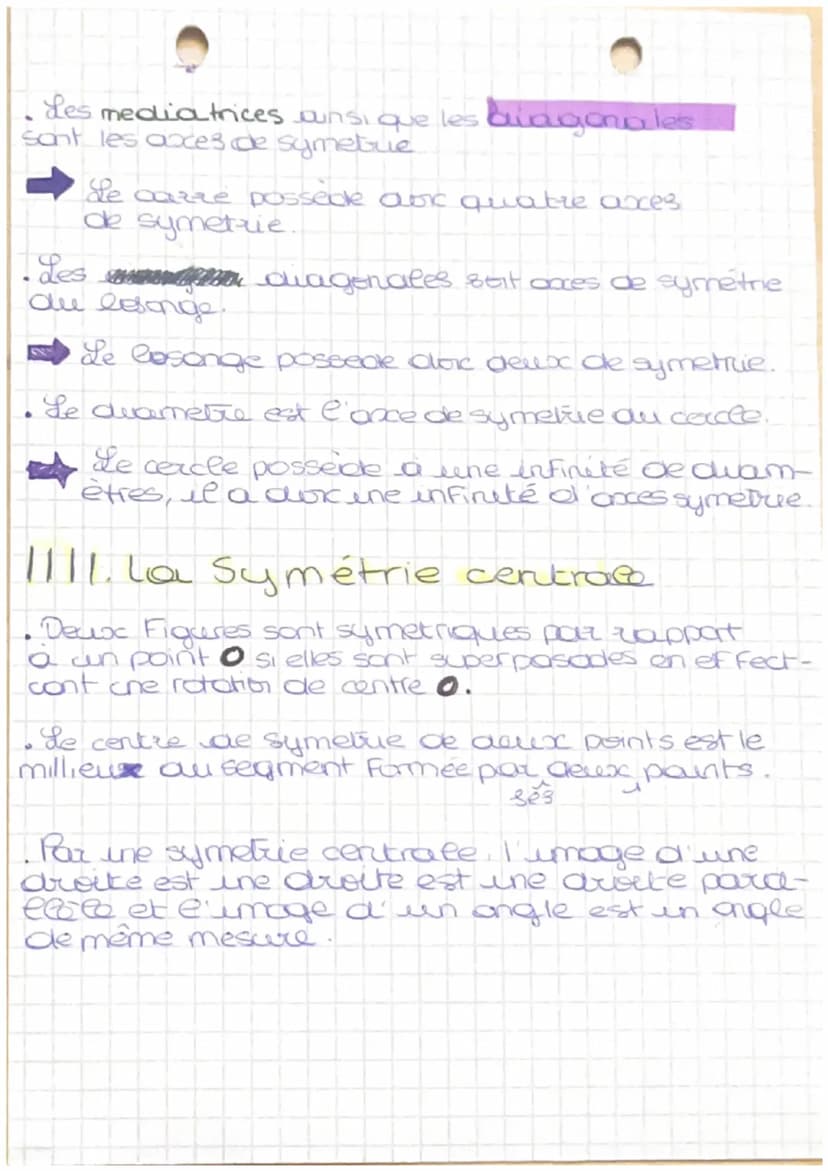 . Les mediatrices ainsi que les diagonales
sont les axes de symetrie
Le carré possède donc quatre axes
de symetrie.
. Les diagonales sont axes de symétrie
du losange.
Le losange possede donc deux de symetrie.
. Le diametre est l'axe de symetrie du cercle.
Le cercle possède à une infinité de diam-
ètres, il a donc une infinité d'axes symetrie.
IIII. La Symétrie centrale
. Deux Figures sont symetriques par rapport
à un point O si elles sont superposades en effect-
cant une rotation de centre O.
. Le centre de symetrie de deux points est le
millieux du segment Formée par deux points.
sês
. Par une symetrie centrale, l'image d'une
droite est une droite est une droite para-
llèle et l'image d'un angle est un angle
de même mesure.